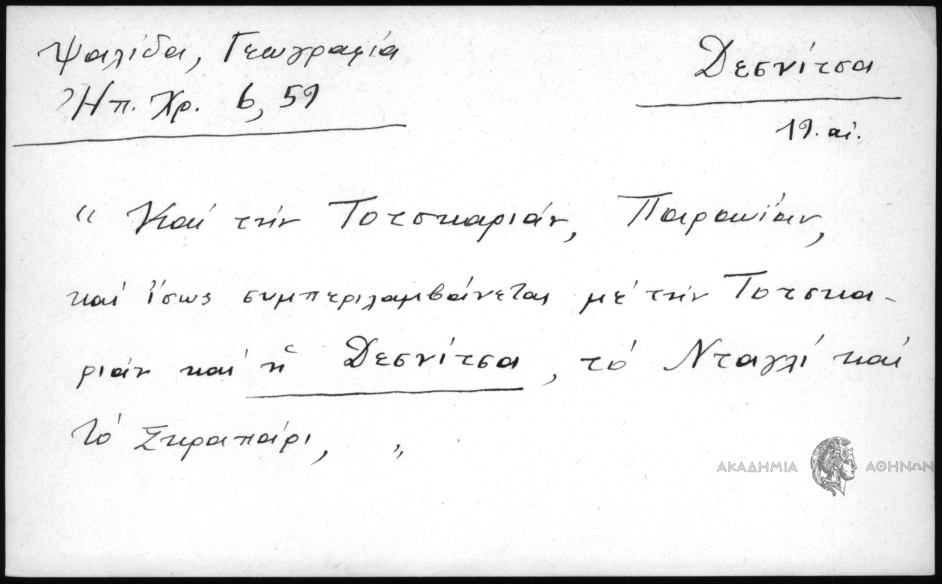 Ψαλίδα, Γεωγραφία
Ἠπ. Χρ. 6, 59
Δεσνίτσα
19. αἰ.
“ Καί τήν Τοτσκαριάν, Παρακίαν,
καί ἴσως συμπεριλαμβάνεται μέ τήν Τοτσκα-
ριάν καί ἡ Δεσνίτσα, τό Νταγλί καί
τό Σκραπάρι, „
ΑΚΑΔΗΜΙΑ ΑΘΗΝΩΝ